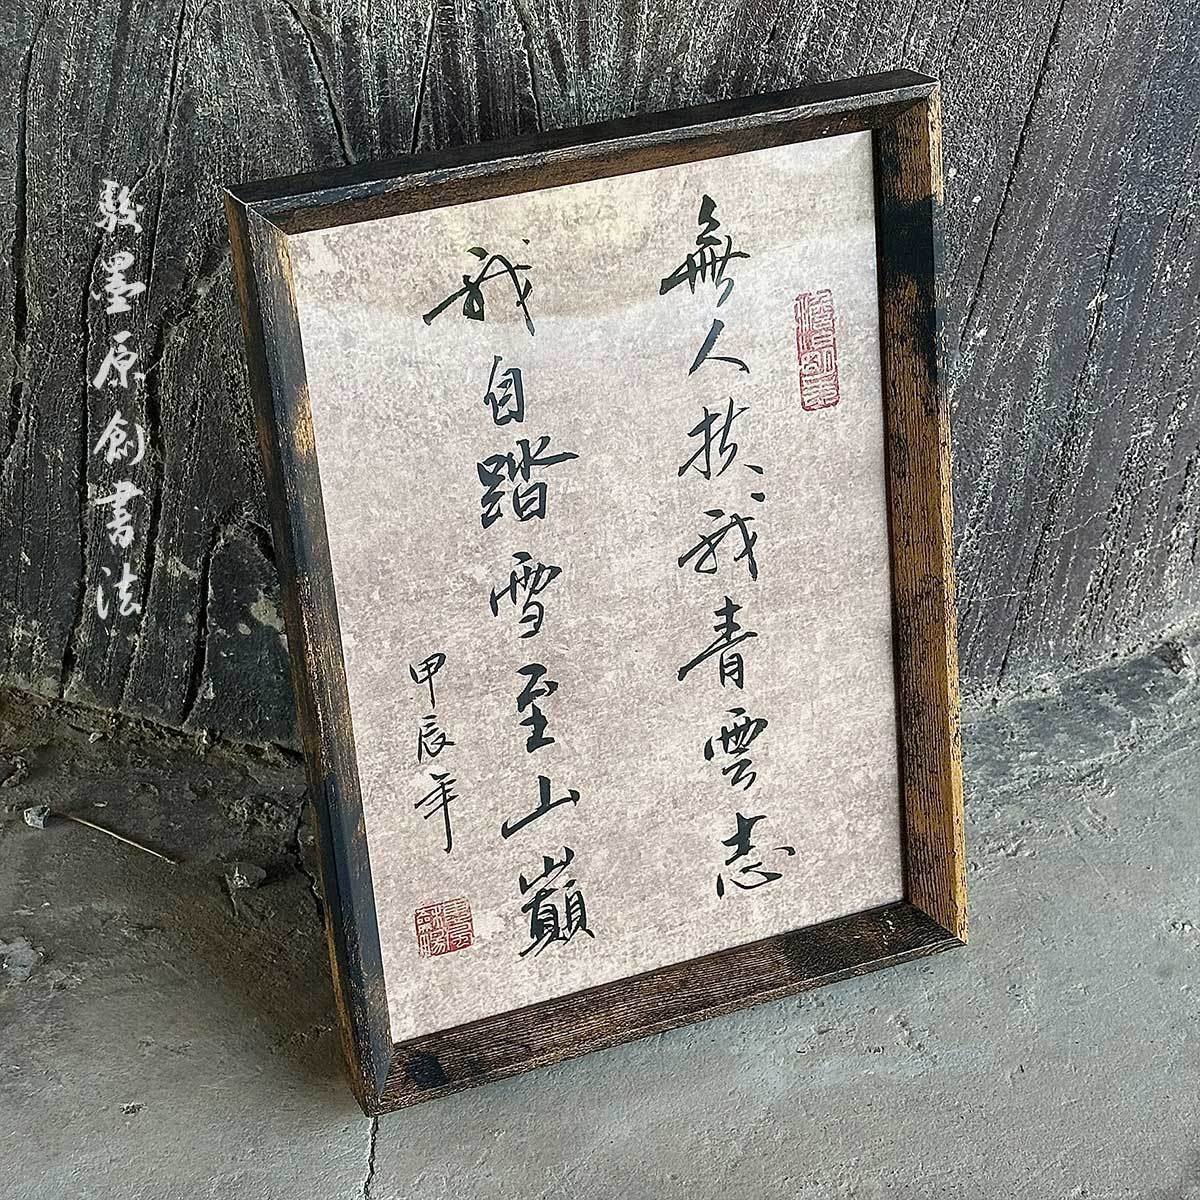 無人扶我青雲志
我自踏雪至山巔
甲辰年
駿墨原創書法